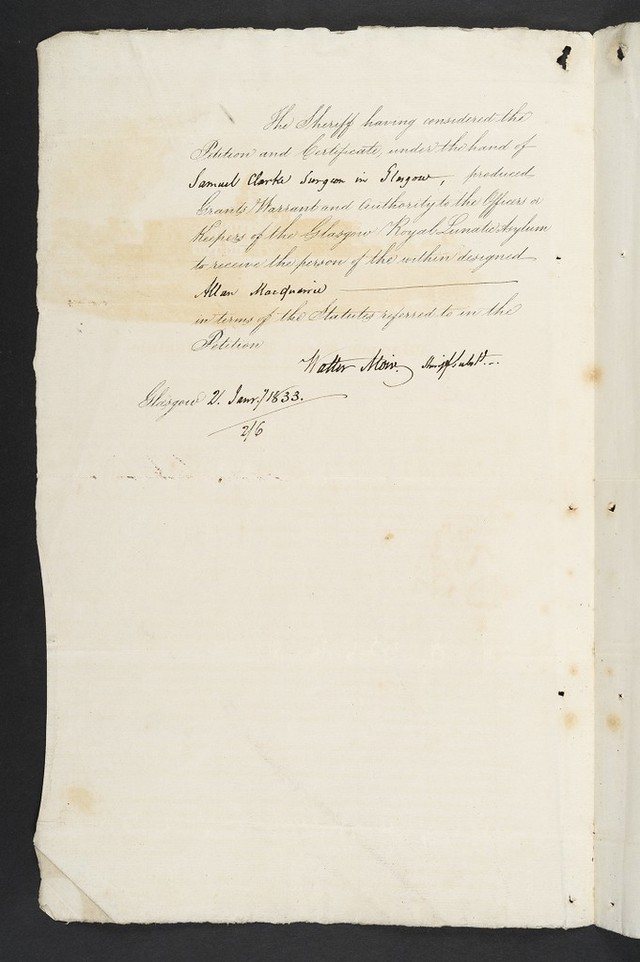 The Sheriff having considered the
Petition and Certificate, under the hand of
Samuel Clarke Surgeon in Glasgow, produced
Grants Warrant and Authority to the Officers or
Keepers of the Glasgow Royal Lunatic Asylum
to receive the person of the within designed
Allan Macquarrie
in terms of the Statutes referred to in the
Petition
Walter Moir,
Glasgow 2. Janry 1833.
2/6